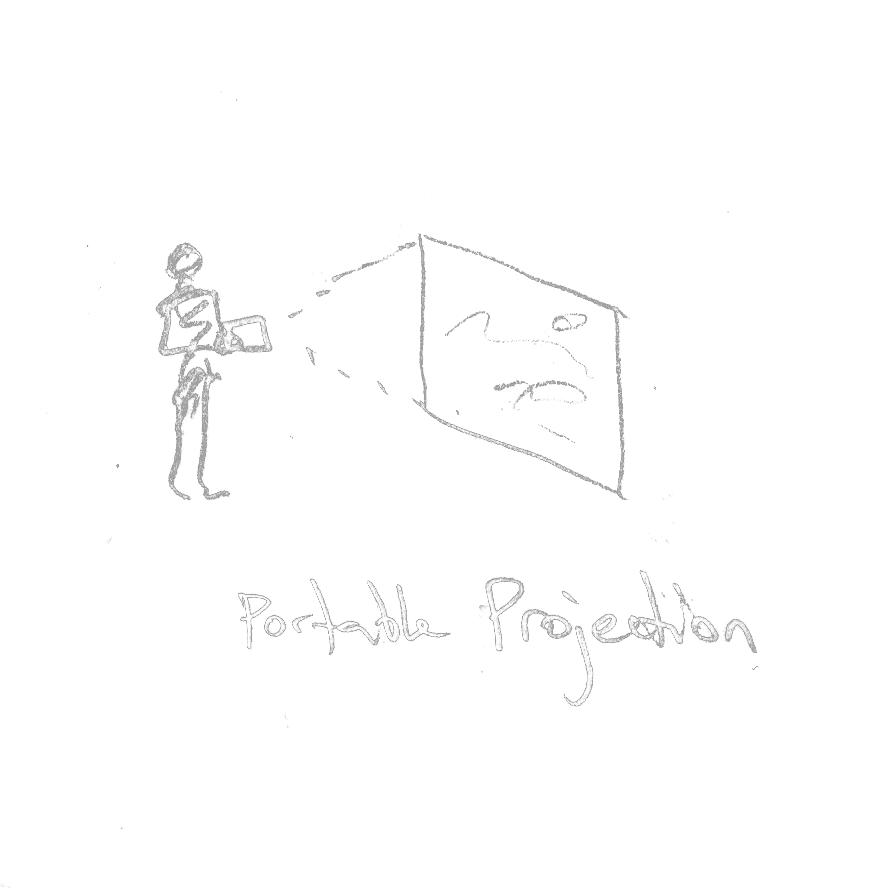 Portable Projection